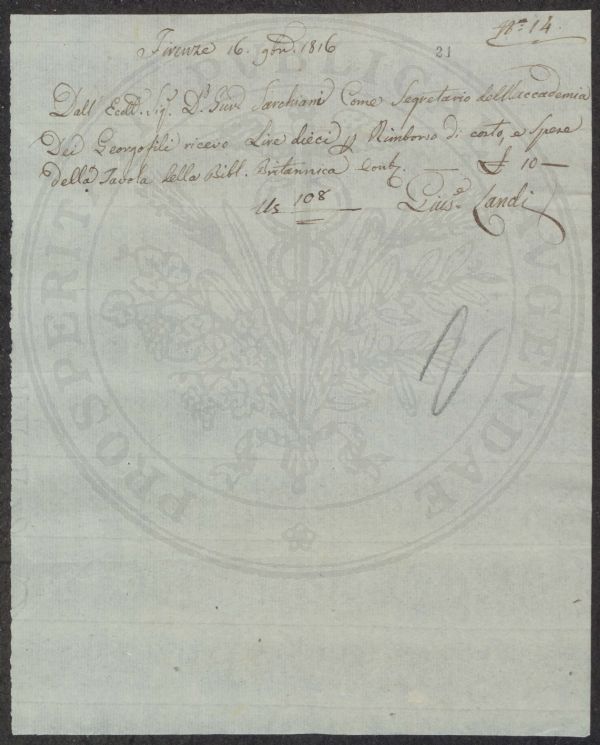 Nº. 14.
Firenze 16. 9bre. 1816
21
Dall' Eccmo. Sig. Dr. Giuse. Sarchiani Come Segretario dell'accademia
Dei Georgofili ricevo Lire dieci p Rimborso di costo, e spese
della Tavola della Bibl. Britannica Conti. £ 10 —
108
Giuse. Landi
PROSPERITATI PUBLICAE AUGENDAE